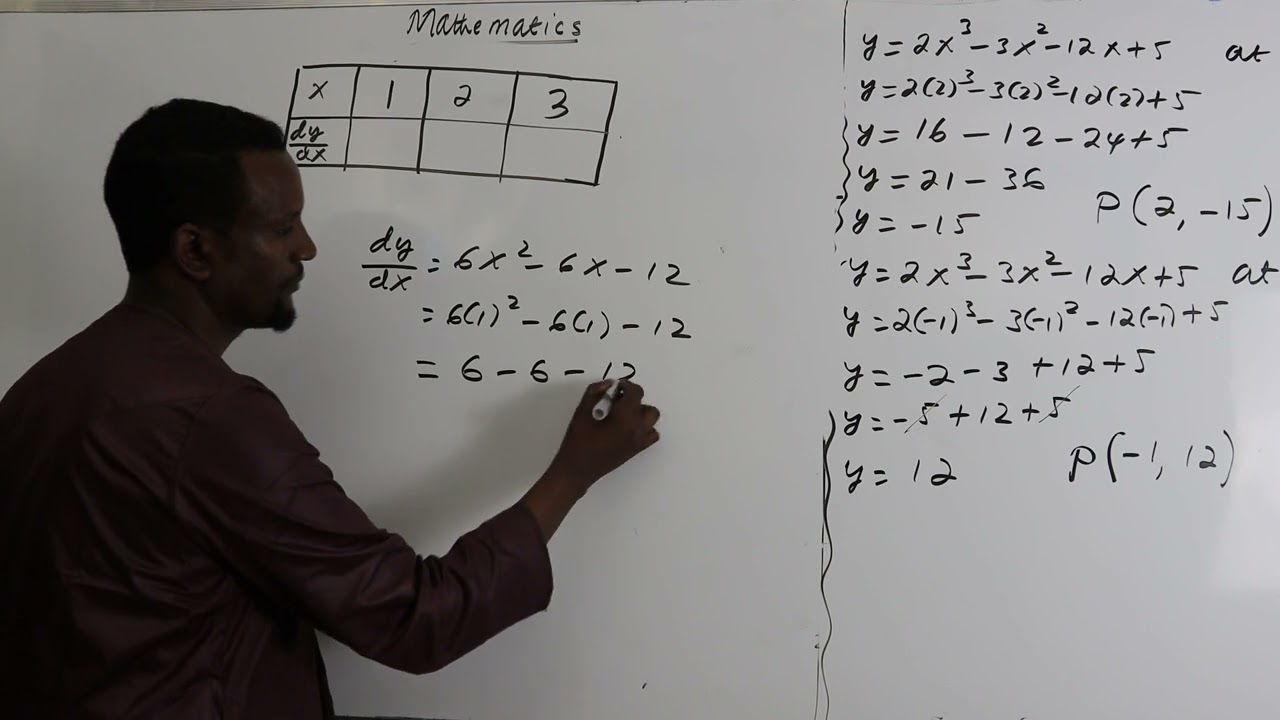 Mathematics
x 1 2 3
dy/dx
dy/dx = 6x² - 6x - 12
= 6(1)² - 6(1) - 12
= 6 - 6 - 12
y = 2x³ - 3x² - 12x + 5 at
y = 2(2)³ - 3(2)² - 12(2) + 5
y = 16 - 12 - 24 + 5
y = 21 - 36
P(2, -15)
y = -15
y = 2x³ - 3x² - 12x + 5 at
y = 2(-1)³ - 3(-1)² - 12(-1) + 5
y = -2 - 3 + 12 + 5
y = -5 + 12 + 5
y = 12 P(-1, 12)